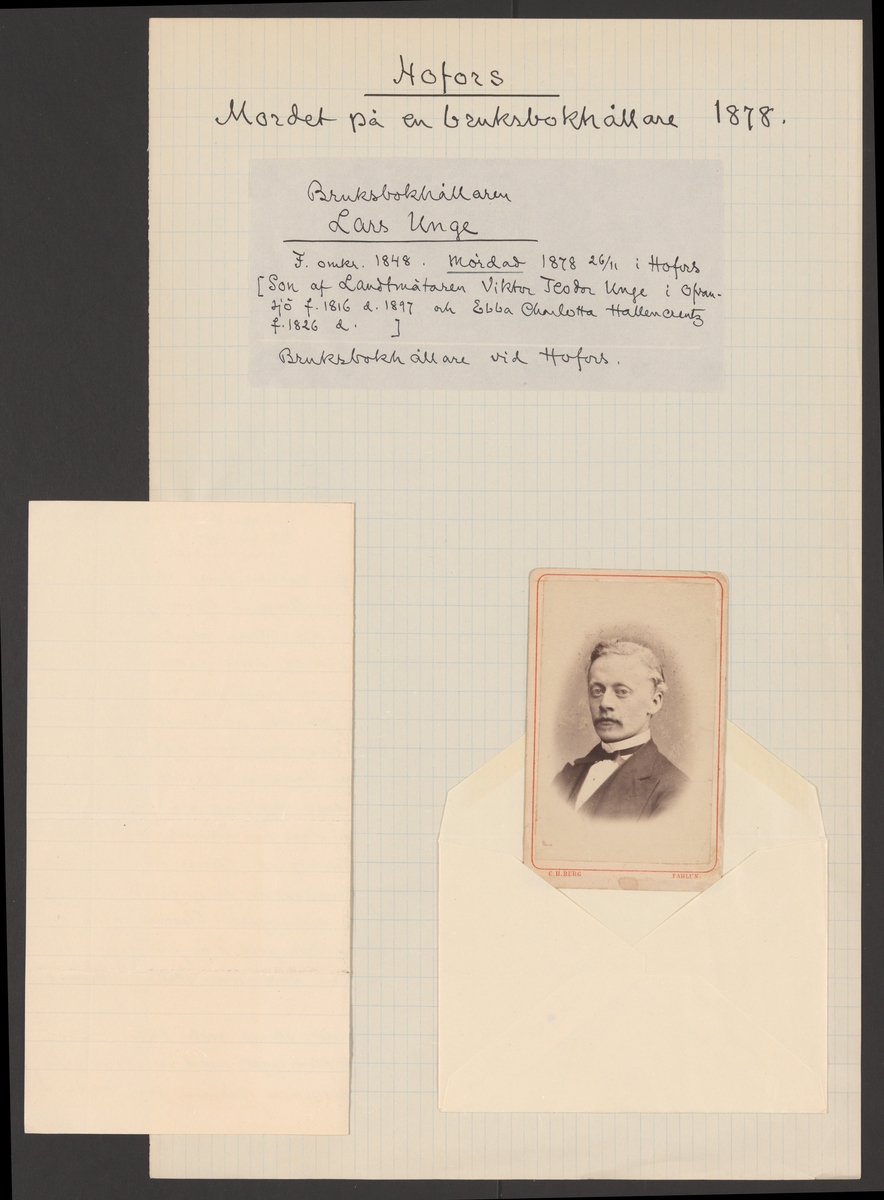 Hofors
Mordet på en bruksbokhållare 1878.
Bruksbokhållaren
Lars Unge
F. omkr. 1848. Mördad 1878 26/11 i Hofors
[Son af Landtmätaren Viktor Teodor Unge i Ofvan-
sjö f. 1816 d. 1897 och Ebba Charlotta Hallencreutz
f. 1826 d. ]
Bruksbokhållare vid Hofors.
C. H. BERG
FAHLUN.